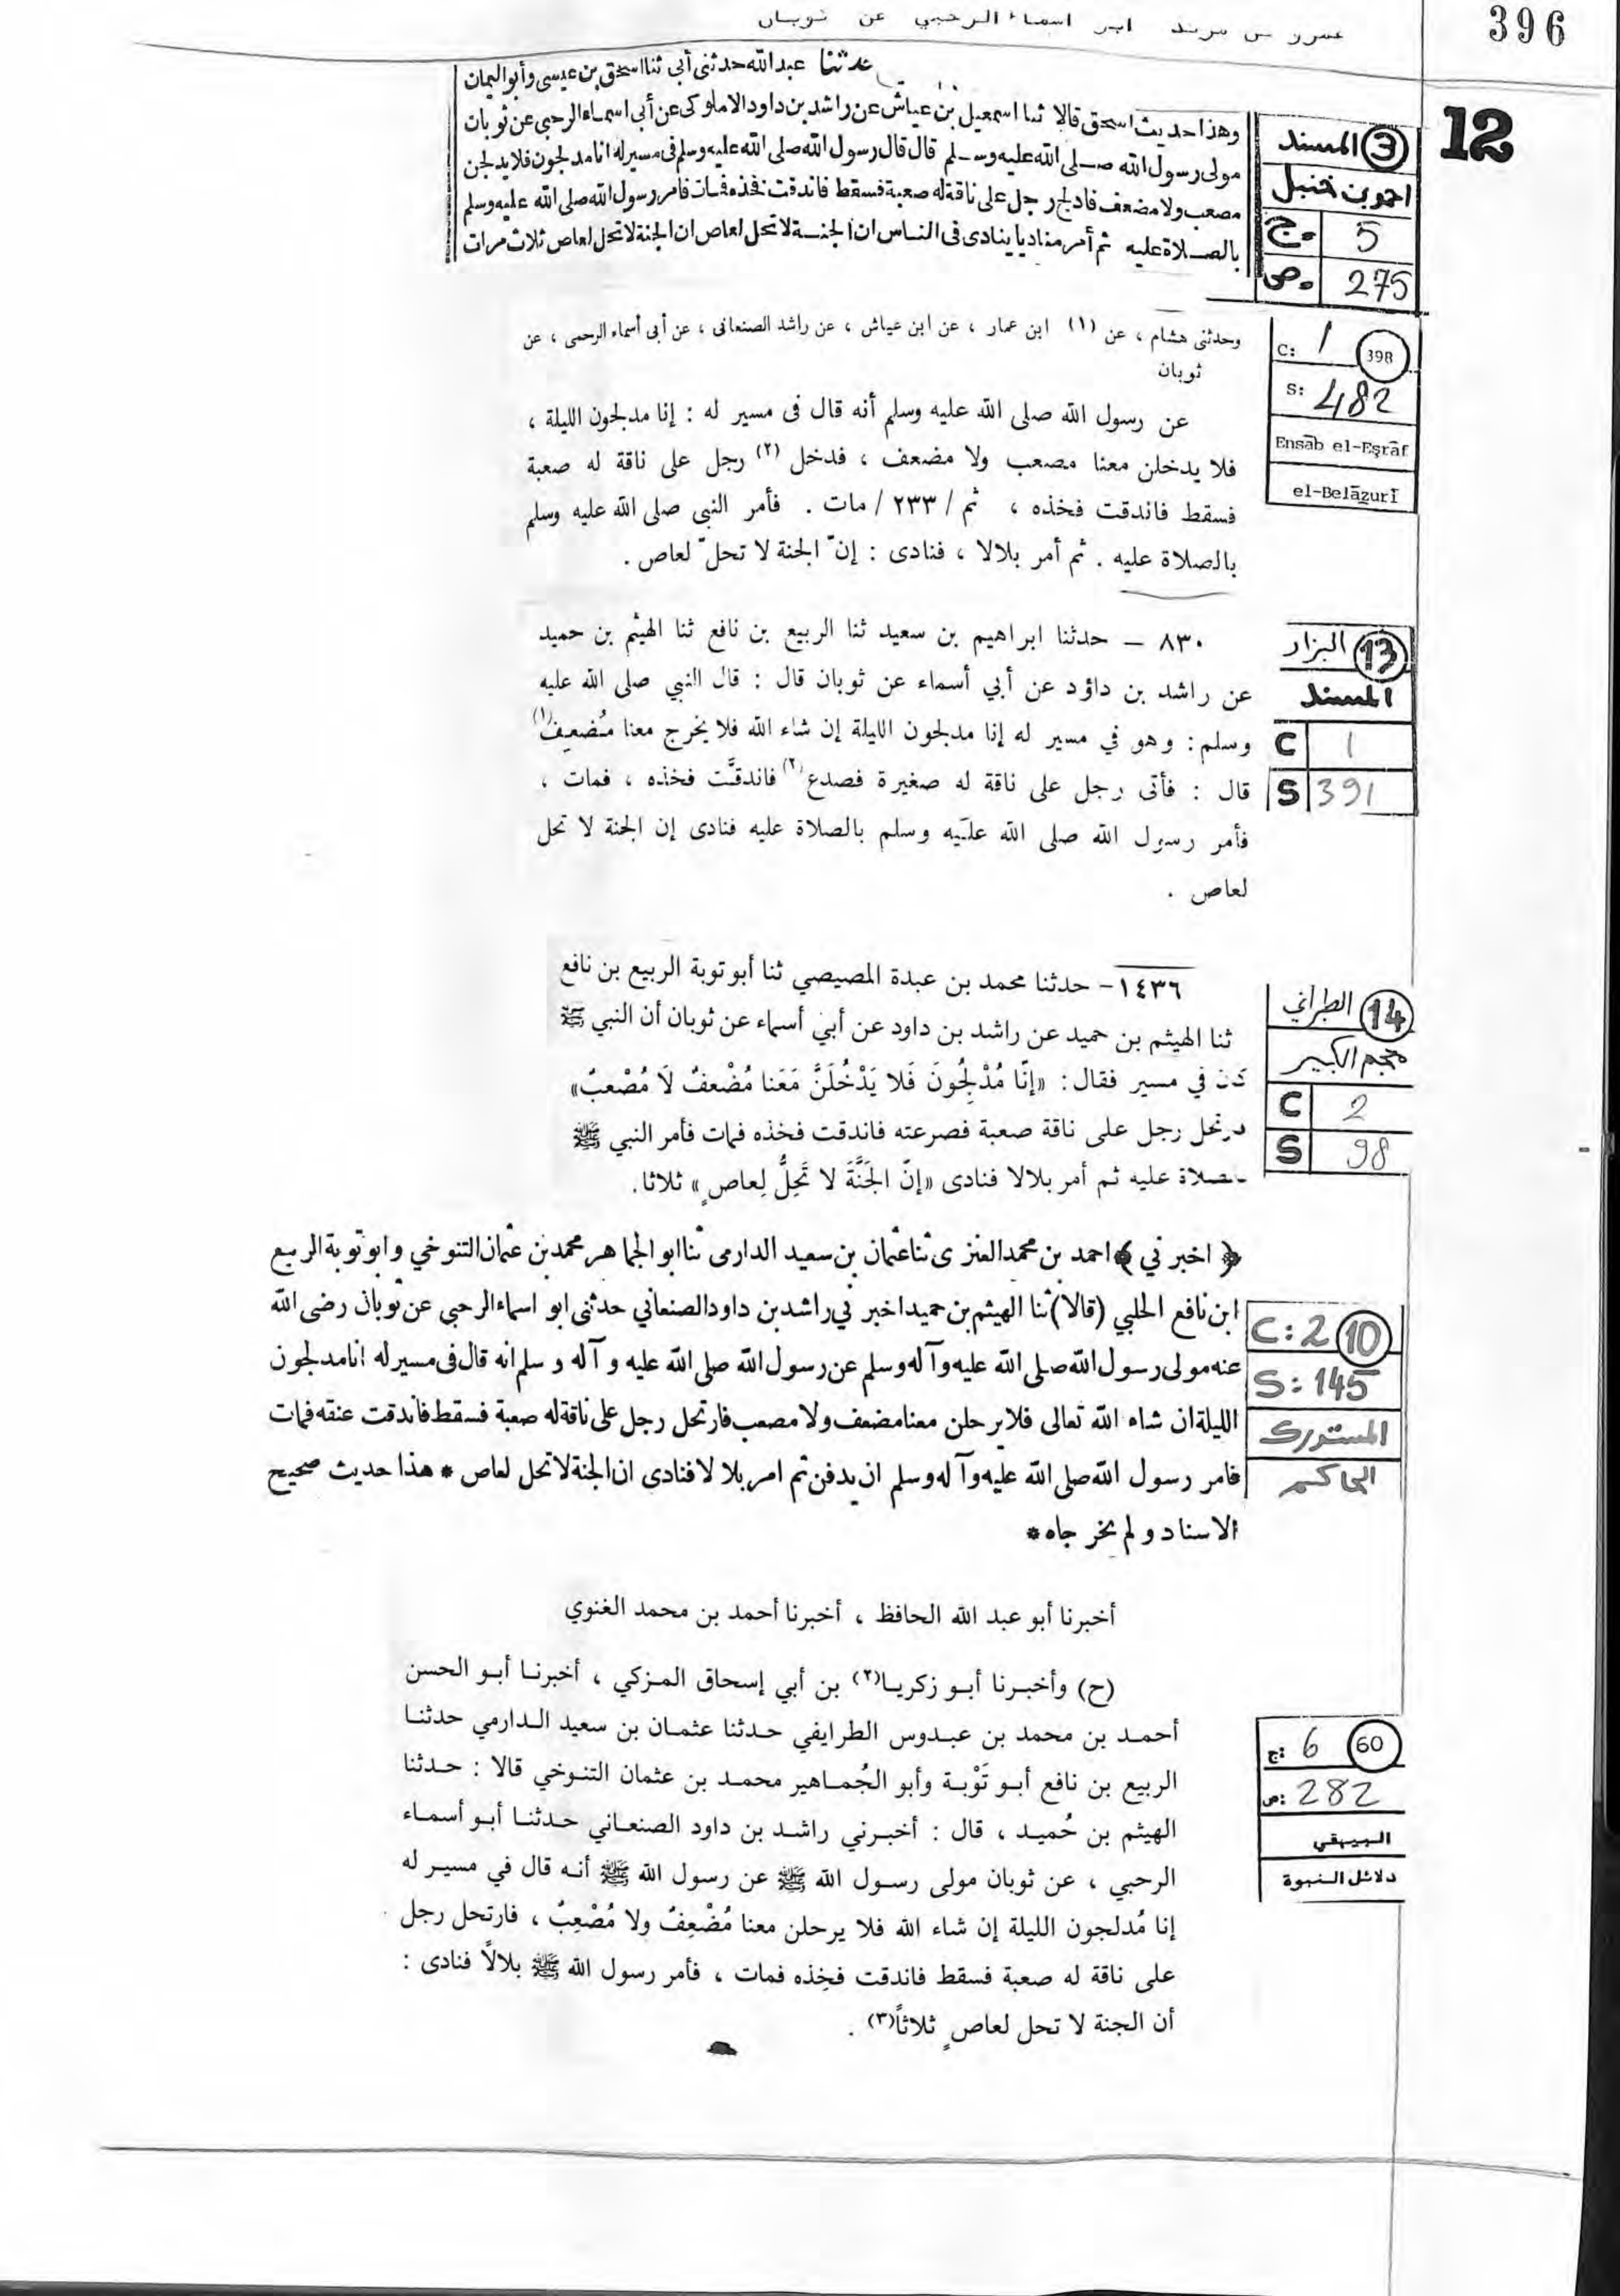 396
عمرو بن مرثد ابو اسماء الرحبي عن ثوبان
12
حدثنا عبدالله حدثنى أبى ثنا اسحق بن عيسى وأبو اليمان
وهذا حديث اسحق قالا ثنا اسمعيل بن عياش عن راشد بن داود الاملوكى عن أبى اسماء الرحبى عن ثوبان
مولى رسول الله صلى الله عليه وسلم قال قال رسول الله صلى الله عليه وسلم فى مسير له انا مدلجون فلا يدلجن
مصعب ولا مضعف فادلج رجل على ناقة له صعبة فسقط فاندقت فخذه فمات فامر رسول الله صلى الله عليه وسلم
بالصلاة عليه ثم أمر مناديا ينادى فى الناس ان الجنة لا تحل لعاص ان الجنة لا تحل لعاص ثلاث مرات
3 المسند
احمد بن حنبل
ج. 5
ص. 275
وحدثنى هشام ، عن (١) ابن عمار ، عن ابن عياش ، عن راشد الصنعانى ، عن أبى أسماء الرحمى ، عن
ثوبان
عن رسول الله صلى الله عليه وسلم أنه قال فى مسير له : إنا مدلجون الليلة ،
فلا يدخلن معنا مصعب ولا مضعف ، فدخل (٢) رجل على ناقة له صعبة
فسقط فاندقت فخذه ، ثم / ٢٣٣ / مات . فأمر النبى صلى الله عليه وسلم
بالصلاة عليه . ثم أمر بلالا ، فنادى : إنّ الجنة لا تحلّ لعاص .
C: 1 398
S: 482
Ensāb el-Eşrāf
el-Belāzurī
٨٣٠ – حدثنا ابراهيم بن سعيد ثنا الربيع بن نافع ثنا الهيثم بن حميد
عن راشد بن داؤد عن أبي أسماء عن ثوبان قال : قال النبي صلى الله عليه
وسلم : وهو في مسير له إنا مدلجون الليلة إن شاء الله فلا يخرج معنا مُضعِف(١)
قال : فأتى رجل على ناقة له صغيرة فصدع(٢) فاندقَّت فخذه ، فمات ،
فأمر رسول الله صلى الله عليه وسلم بالصلاة عليه فنادى إن الجنة لا تحل
لعاص .
13 البزار
المسند
C 1
S 391
١٤٣٦- حدثنا محمد بن عبدة المصيصي ثنا أبو توبة الربيع بن نافع
ثنا الهيثم بن حميد عن راشد بن داود عن أبي أسماء عن ثوبان أن النبي ﷺ
كان في مسير فقال : «إنّا مُدْلِجُونَ فَلا يَدْخُلَنَّ مَعَنا مُضْعفٌ لاَ مُصْعبٌ»
رجل على ناقة صعبة فصرعته فاندقت فخذه فمات فأمر النبي ﷺ
صلاة عليه ثم أمر بلالا فنادى «إنّ الجَنَّةَ لا تَحِلُّ لِعاصٍ» ثلاثا.
14 الطبراني
معجم الكبير
C 2
S 98
﴿ اخبرني ﴾ احمد بن محمد العنزى ثنا عثمان بن سعيد الدارمى ثنا ابو الجماهر محمد بن عثمان التنوخي وابو توبة الربيع
ابن نافع الحلبي (قالا) ثنا الهيثم بن حميد اخبرني راشد بن داود الصنعاني حدثنى ابو اسماء الرحبى عن ثوبان رضى الله
عنه مولى رسول الله صلى الله عليه وآله وسلم عن رسول الله صلى الله عليه وآله وسلم انه قال فى مسير له انا مدلجون
الليلة ان شاء الله تعالى فلا يرحلن معنا مضعف ولا مصعب فارتحل رجل على ناقة له صعبة فسقط فاندقت عنقه فمات
فامر رسول الله صلى الله عليه وآله وسلم ان يدفن ثم امر بلالا فنادى ان الجنة لا تحل لعاص * هذا حديث صحيح
الاسناد ولم يخرجاه *
C: 2 10
S: 145
المستدرك
الحاكم
أخبرنا أبو عبد الله الحافظ ، أخبرنا أحمد بن محمد الغنوي
(ح) وأخبرنا أبو زكريا(٢) بن أبي إسحاق المزكي ، أخبرنا أبو الحسن
أحمد بن محمد بن عبدوس الطرايفي حدثنا عثمان بن سعيد الدارمي حدثنا
الربيع بن نافع أبو تَوْبة وأبو الجُماهير محمد بن عثمان التنوخي قالا : حدثنا
الهيثم بن حُميد ، قال : أخبرني راشد بن داود الصنعاني حدثنا أبو أسماء
الرحبي ، عن ثوبان مولى رسول الله ﷺ عن رسول الله ﷺ أنه قال في مسير له
إنا مُدلجون الليلة إن شاء الله فلا يرحلن معنا مُضْعِفٌ ولا مُصْعِبٌ ، فارتحل رجل
على ناقة له صعبة فسقط فاندقت فخِذه فمات ، فأمر رسول الله ﷺ بلالًا فنادى :
أن الجنة لا تحل لعاصٍ ثلاثاً(٣) .
ج: 6 60
ص: 282
البيهقي
دلائل النبوة